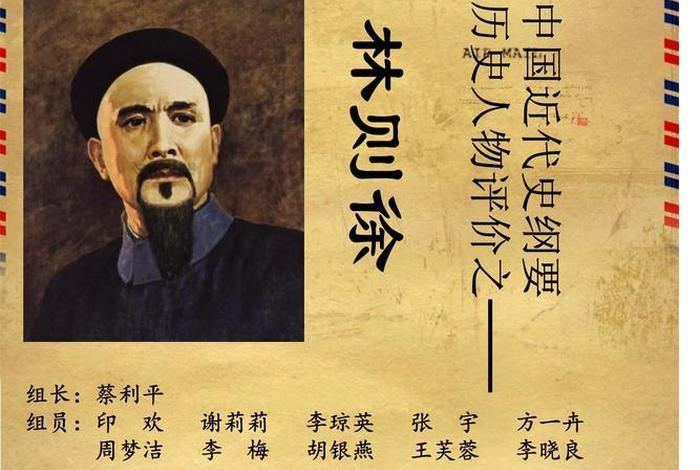 中国近代史纲要
历史人物评价之——
林则徐
AIR MAIL
组长：蔡利平
组员：印 欢 谢莉莉 李琼英 张 宇 方一卉
周梦洁 李 梅 胡银燕 王芙蓉 李晓良